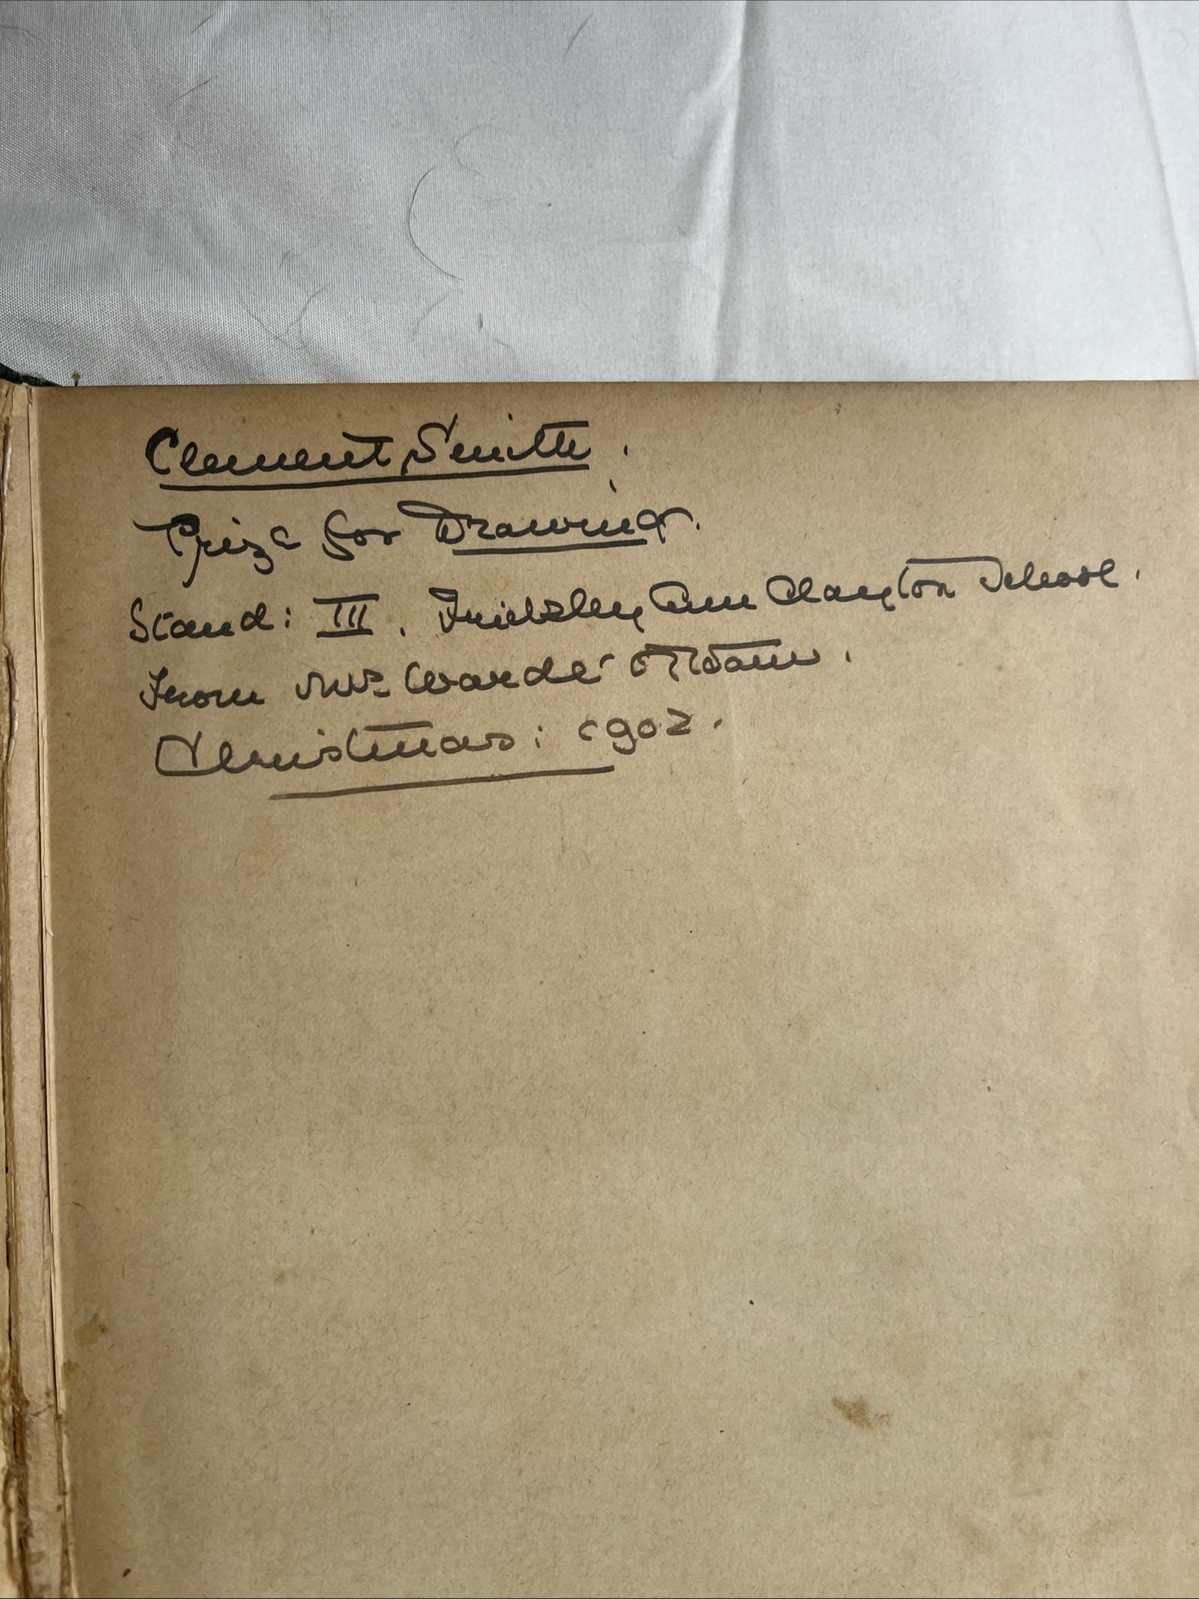 Clement Smith.
Prize for Drawing.
Stand: III. Frickley Cum Clayton School.
From Mrs Warde-Aldam.
Christmas: 1902.